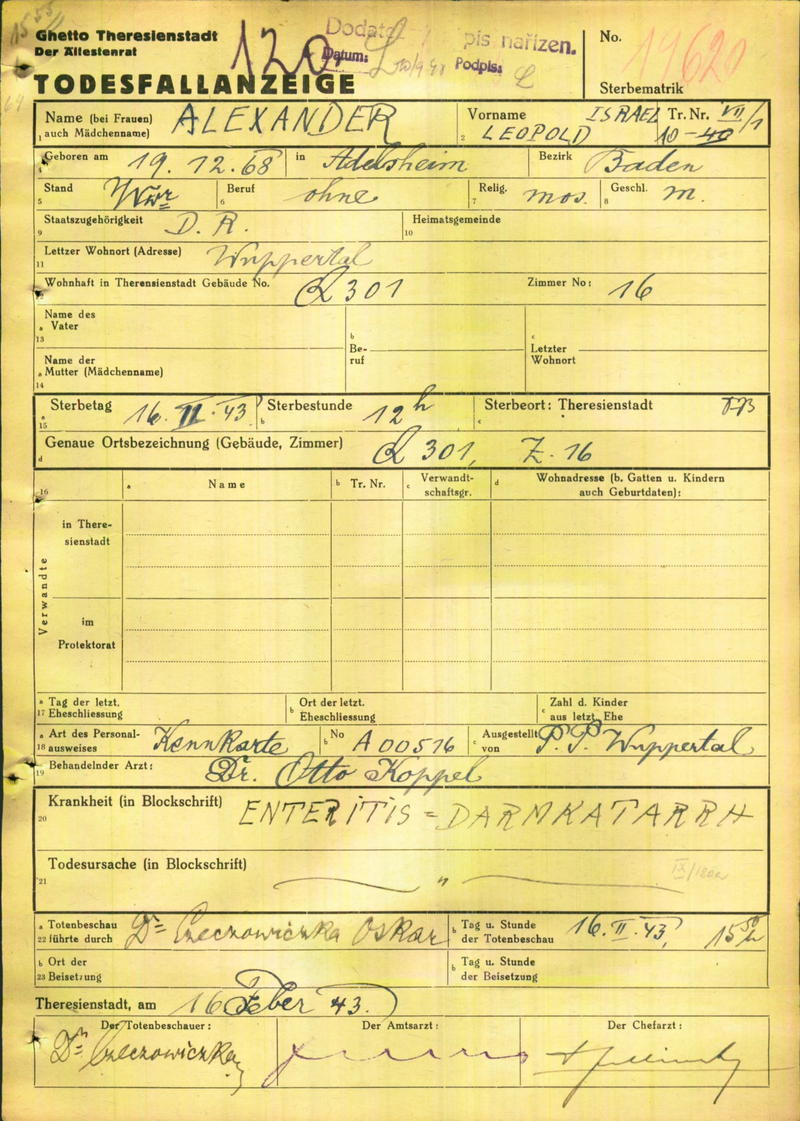 Ghetto Theresienstadt
Der Ältestenrat
TODESFALLANZEIGE
120
Datum:
pis nařízen.
Podpis:
No. 19620
Sterbematrik
Name (bei Frauen) auch Mädchenname) ALEXANDER
1
Vorname ISRAEL LEOPOLD
2
Tr. Nr. VII/1
10-40
Geboren am 19. 12. 68 in Adelsheim Bezirk Baden
Stand Wwr Beruf ohne Relig. mos. Geschl. m.
5 6 7 8
Staatszugehörigkeit D. R. Heimatsgemeinde
9 10
Lettzer Wohnort (Adresse) Wuppertal
11
Wohnhaft in Therensienstadt Gebäude No. L 301 Zimmer No: 16
Name des
a Vater
13
b Be-
ruf
c Letzter
Wohnort
Name der
a Mutter (Mädchenname)
14
a Sterbetag 16. II. 43 b Sterbestunde 12 h c Sterbeort: Theresienstadt
15
d Genaue Ortsbezeichnung (Gebäude, Zimmer) L 301, Z. 16
16 a Name b Tr. Nr. c Verwandt-
schaftsgr. d Wohnadresse (b. Gatten u. Kindern
auch Geburtdaten):
Verwandte
in There-
sienstadt
im
Protektorat
a Tag der letzt.
17 Eheschliessung
b Ort der letzt.
Eheschliessung
c Zahl d. Kinder
aus letzt. Ehe
a Art des Personal-
18 ausweises Kennkarte
b No A 00516
c Ausgestellt
von P. P. Wuppertal
19 Behandelnder Arzt: Dr. Otto Koppel
Krankheit (in Blockschrift) ENTERITIS = DARMKATARRH
20
Todesursache (in Blockschrift) "
21
a Totenbeschau
22 führte durch Dr Czeczowiczka Oskar
b Tag u. Stunde
der Totenbeschau 16. II. 43, 15 50 h
b Ort der
23 Beisetzung
b Tag u. Stunde
der Beisetzung
Theresienstadt, am 16 Feber 43.
Der Totenbeschauer: Der Amtsarzt: Der Chefarzt:
Dr Czeczowiczka